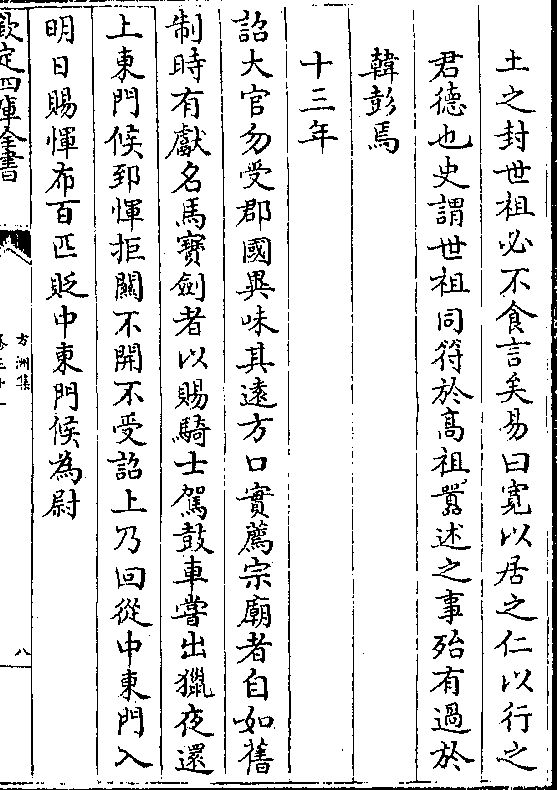 土之封世祖必不食言矣易曰寛以居之仁以行之
君德也史謂世祖同符於髙祖囂述之事殆有過於
韓彭焉
十三年
詔大官勿受郡國異味其逺方口實薦宗廟者自如舊
制時有獻名馬寶劍者以賜騎士駕鼓車嘗出獵夜還
上東門候郅惲拒關不開不受詔上乃回從中東門入
明日賜惲布百匹貶中東門候為尉
欽定四庫全書
方洲集
八